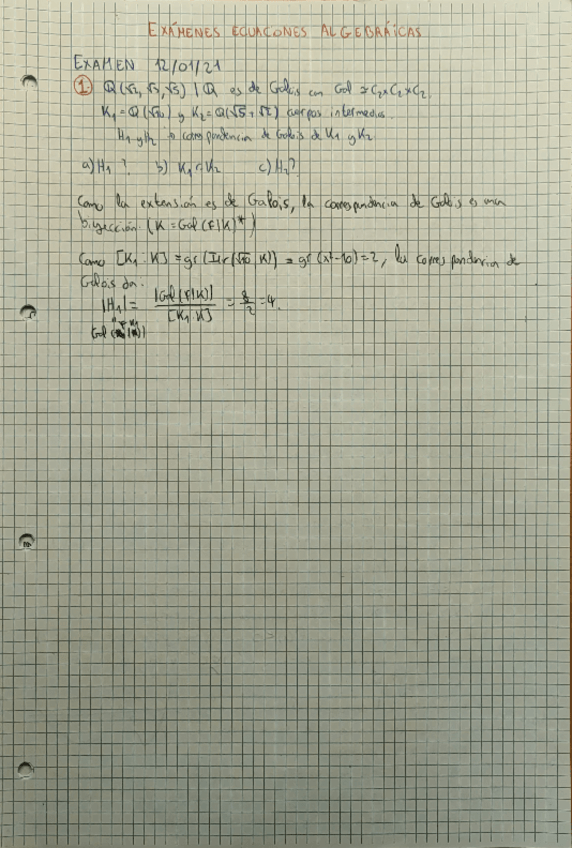 EXÁMENES ECUACONES ALGEBRÁICAS
EXAMEN 12/01/21
1. Q(√2, √3, √5) | Q es de Galois con Gal ≅ C₂×C₂×C₂.
K₁ = Q(√10) y K₂ = Q(√5 + √2) cuerpos intermedios.
H₁ y H₂ → correspondencia de Galois de K₁ y K₂
a) H₁? b) K₁ ⊂ K₂ c) H₂?
Como la extensión es de Galois, la correspondencia de Galois es una
biyección. (K = Gal(F|K)*)
Como [K₁:K] = gr(Irr(√10, K)) = gr(x²-10) = 2, la correspondencia de
Galois da:
|H₁| = |Gal(F|K)| / [K₁:K] = 8/2 = 4.